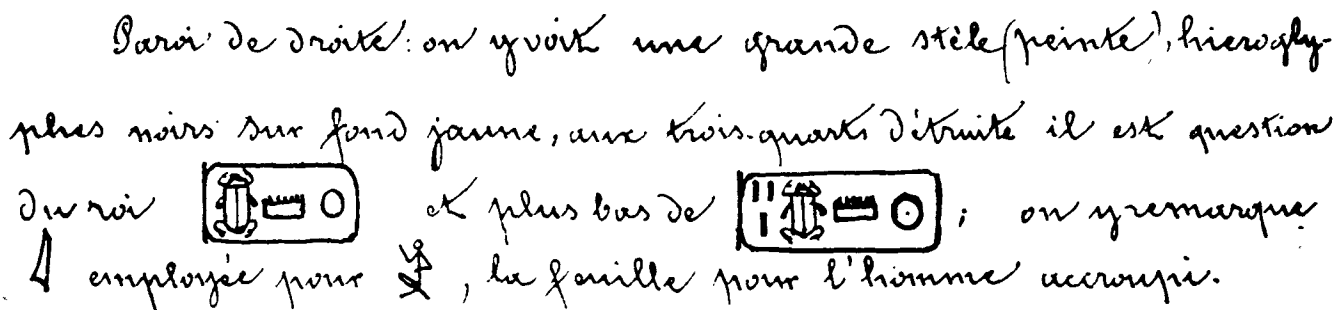 Paroi de droite: on y voit une grande stèle (peinte), hierogly-
phes noirs sur fond jaune, aux trois-quarts détruite il est question
du roi 𓆣𓏠𓇳 et plus bas de 𓏥𓆣𓏠𓇳; on y remarque
𓇋 employée pour 𓀀, la feuille pour l'homme accroupi.